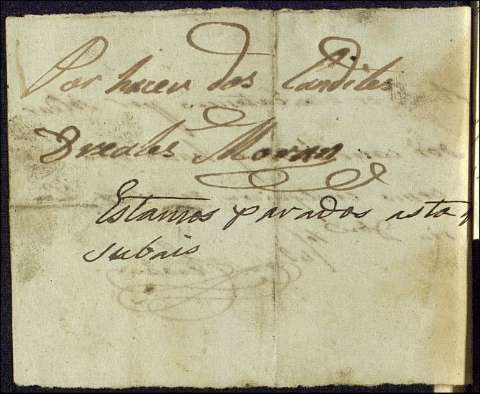 Por hacer dos Candiles
Dreales Moran
Estamos parados asta q
subais